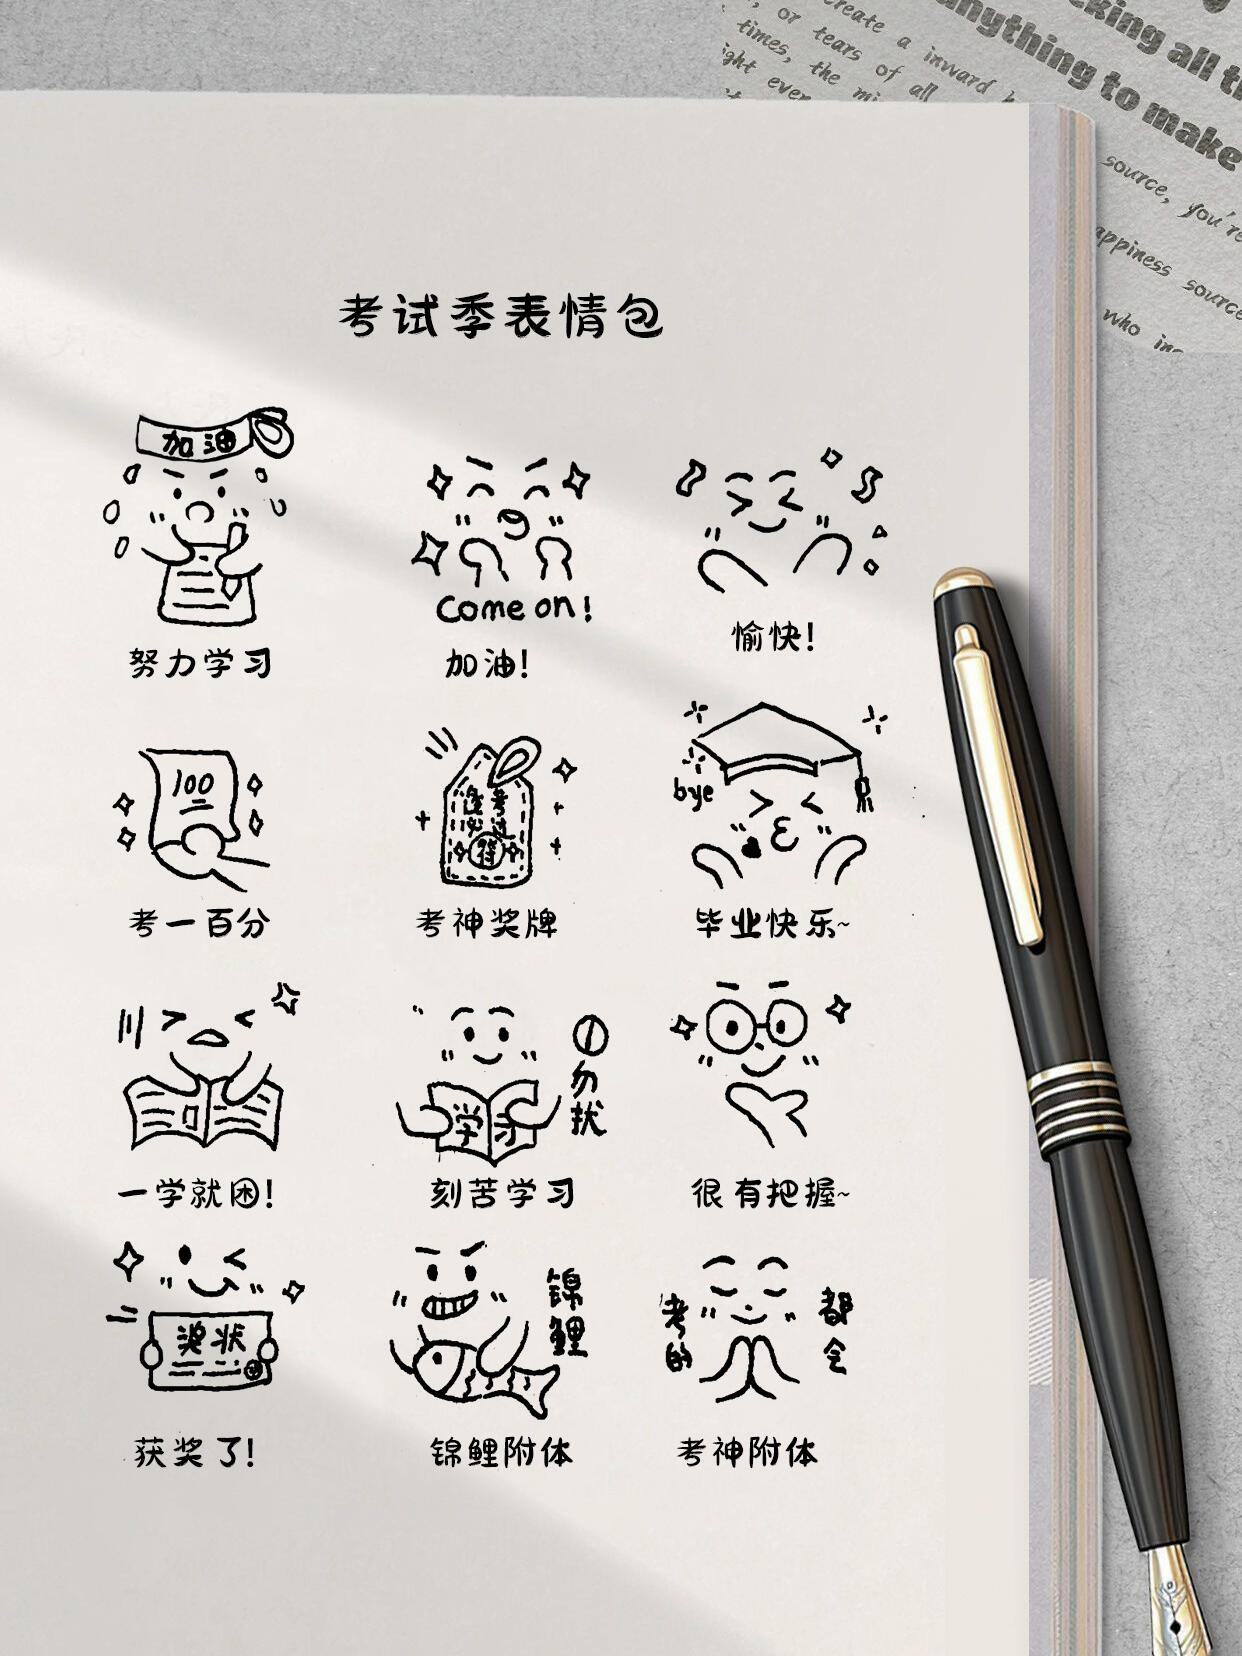 create a inward
, or tears of all
times, the mi
ight ever
cking all t
anything to make
source, you're
appiness source
who ins
考试季表情包
加油
努力学习
Come on!
加油!
愉快!
100
考一百分
逢考
必过
符
考神奖牌
bye
毕业快乐~
一学就困!
学习
勿扰
刻苦学习
很有把握~
奖状
获奖了!
锦鲤
锦鲤附体
考的
都会
考神附体